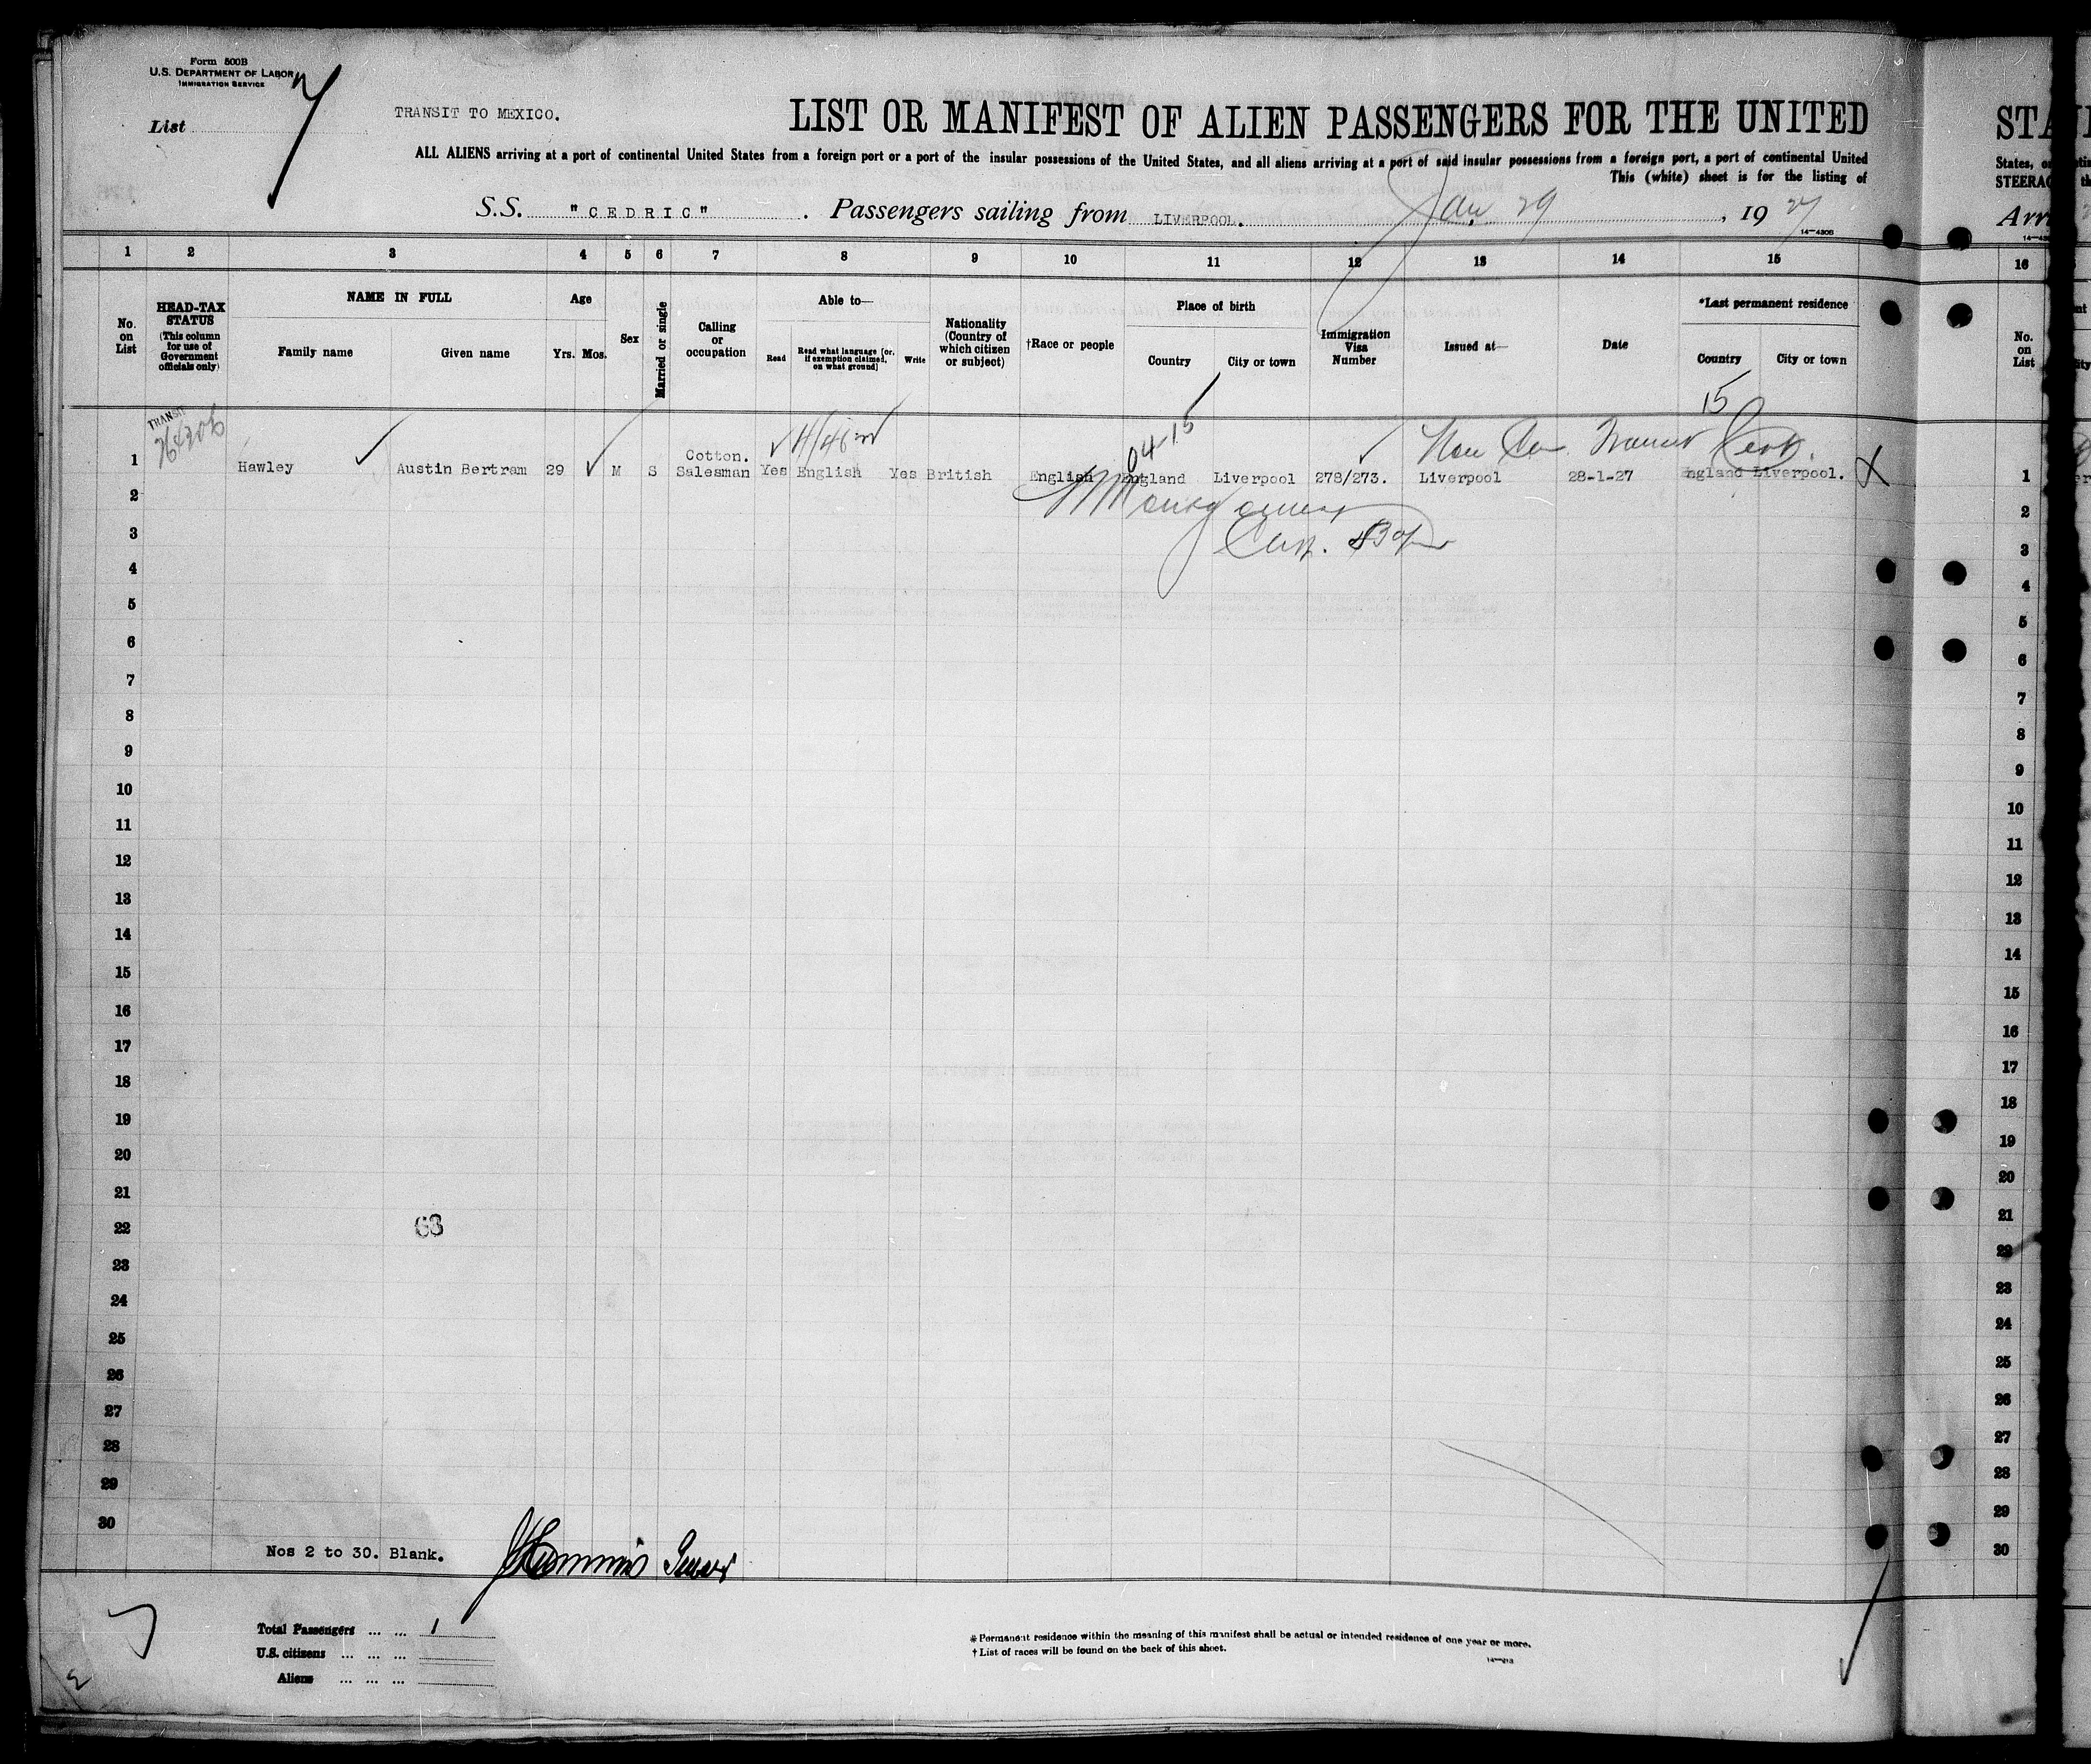 Form 500B
U.S. DEPARTMENT OF LABOR
IMMIGRATION SERVICE
List
7
TRANSIT TO MEXICO.
LIST OR MANIFEST OF ALIEN PASSENGERS FOR THE UNITED
ALL ALIENS arriving at a port of continental United States from a foreign port or a port of the insular possessions of the United States, and all aliens arriving at a port of said insular possessions from a foreign port, a port of continental United
This (white) sheet is for the listing of
S.S. "CEDRIC". Passengers sailing from LIVERPOOL. Jan 29, 1927
14—430B
STA
States, o
STEERAG
Arri
1 2 3 4 5 6 7 8 9 10 11 12 13 14 15 16
No. on List
HEAD-TAX STATUS (This column for use of Government officials only)
NAME IN FULL
Family name
Given name
Age
Yrs. Mos.
Sex
Married or single
Calling or occupation
Able to—
Read
Read what language [or, if exemption claimed, on what ground]
Write
Nationality (Country of which citizen or subject)
†Race or people
Place of birth
Country
City or town
Immigration Visa Number
Issued at—
Date
*Last permanent residence
Country
City or town
No. on List
15
TRANSIT
04-15
1 Hawley Austin Bertram 29 M S Cotton. Salesman Yes English Yes British English England Liverpool 278/273. Liverpool 28-1-27 England Liverpool. 1
2 2
3 3
4 4
5 5
6 6
7 7
8 8
9 9
10 10
11 11
12 12
13 13
14 14
15 15
16 16
17 17
18 18
19 19
20 20
21 21
22 68 22
23 23
24 24
25 25
26 26
27 27
28 28
29 29
30 30
Nos 2 to 30. Blank.
Total Passengers ... ... 1
U.S. citizens ... ... ...
Aliens ... ... ...
* Permanent residence within the meaning of this manifest shall be actual or intended residence of one year or more.
† List of races will be found on the back of this sheet.